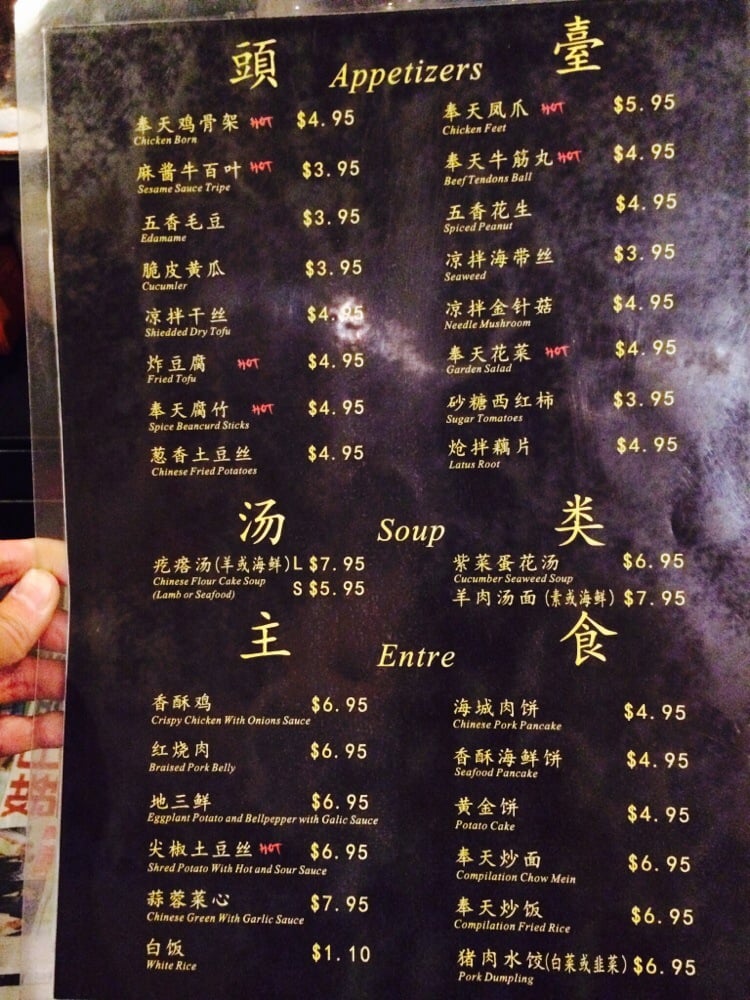 頭 Appetizers 臺
奉天鸡骨架 HOT $4.95
Chicken Born
麻酱牛百叶 HOT $3.95
Sesame Sauce Tripe
五香毛豆 $3.95
Edamame
脆皮黄瓜 $3.95
Cucumler
凉拌干丝 $4.95
Shiedded Dry Tofu
炸豆腐 HOT $4.95
Fried Tofu
奉天腐竹 HOT $4.95
Spice Beancurd Sticks
葱香土豆丝 $4.95
Chinese Fried Potatoes
奉天凤爪 HOT $5.95
Chicken Feet
奉天牛筋丸 HOT $4.95
Beef Tendons Ball
五香花生 $4.95
Spiced Peanut
凉拌海带丝 $3.95
Seaweed
凉拌金针菇 $4.95
Needle Mushroom
奉天花菜 HOT $4.95
Garden Salad
砂糖西红柿 $3.95
Sugar Tomatoes
炝拌藕片 $4.95
Latus Root
汤 Soup 类
疙瘩汤(羊或海鲜) L $7.95
Chinese Flour Cake Soup
(Lamb or Seafood) S $5.95
紫菜蛋花汤 $6.95
Cucumber Seaweed Soup
羊肉汤面 (素或海鲜) $7.95
主 Entre 食
香酥鸡 $6.95
Crispy Chicken With Onions Sauce
红烧肉 $6.95
Braised Pork Belly
地三鲜 $6.95
Eggplant Potato and Bellpepper with Galic Sauce
尖椒土豆丝 HOT $6.95
Shred Potato With Hot and Sour Sauce
蒜蓉菜心 $7.95
Chinese Green With Garlic Sauce
白饭 $1.10
White Rice
海城肉饼 $4.95
Chinese Pork Pancake
香酥海鲜饼 $4.95
Seafood Pancake
黄金饼 $4.95
Potato Cake
奉天炒面 $6.95
Compilation Chow Mein
奉天炒饭 $6.95
Compilation Fried Rice
猪肉水饺(白菜或韭菜) $6.95
Pork Dumpling